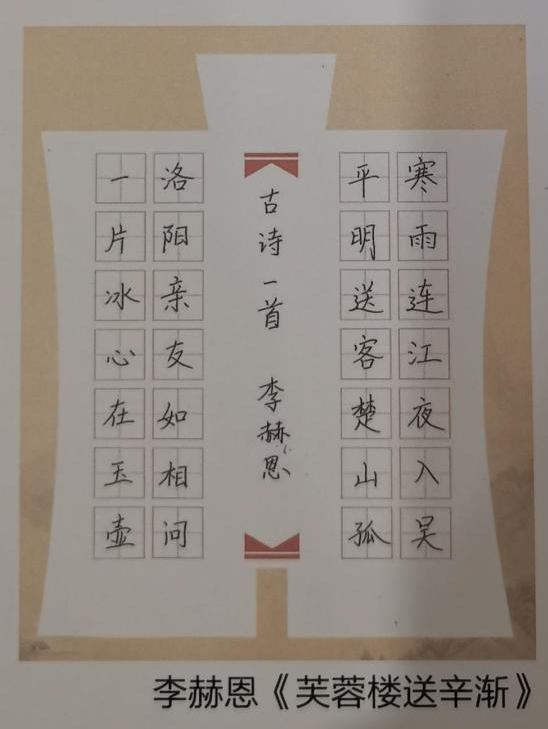 寒雨连江夜入吴
平明送客楚山孤
古诗一首 李赫恩
洛阳亲友如相问
一片冰心在玉壶
李赫恩《芙蓉楼送辛渐》